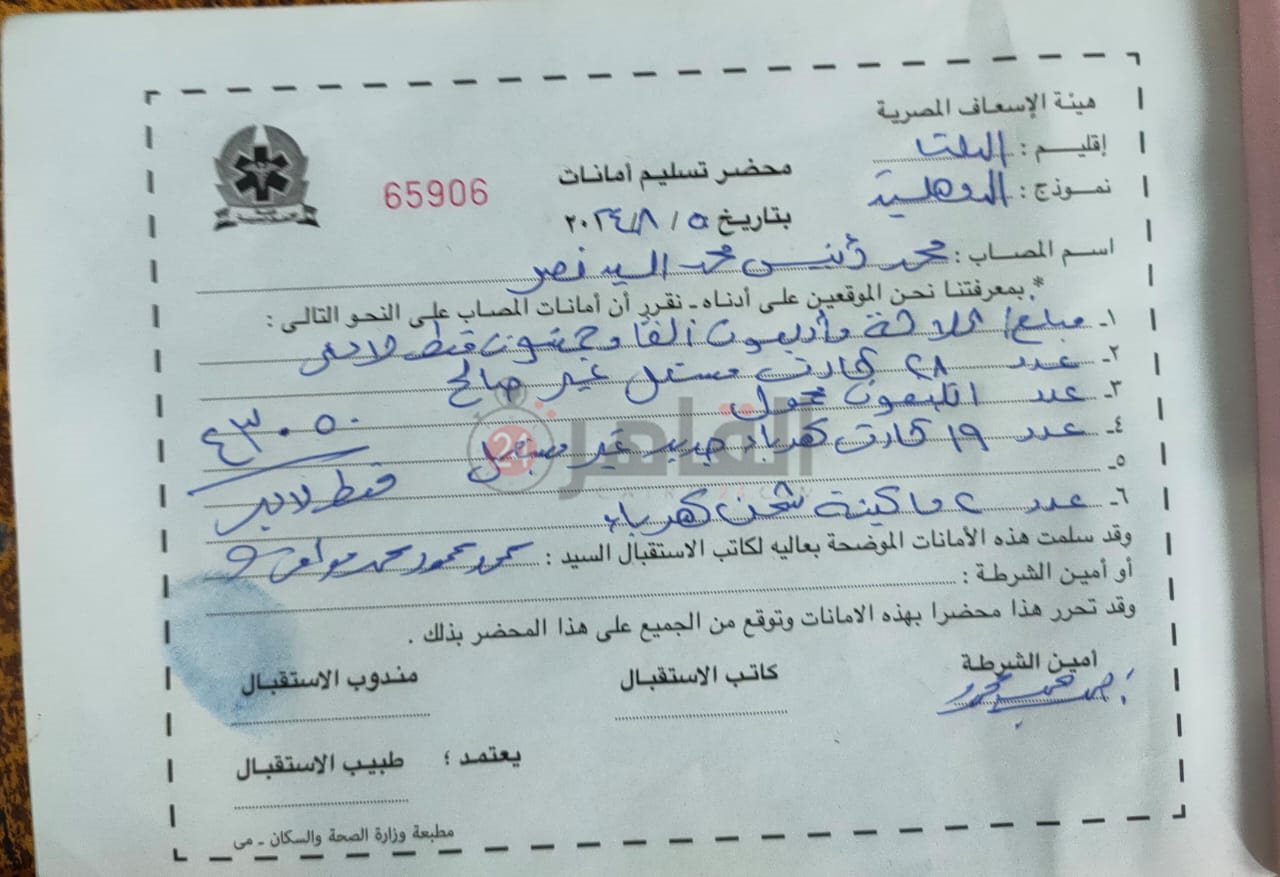 هيئة الإسعاف المصرية
إقليم : الدلتا
نموذج : الدقهلية
محضر تسليم أمانات
65906
بتاريخ ٥ / ٢٠٢٤/٨
اسم المصاب : محمد أنيس محمد السيد نصر
* بمعرفتنا نحن الموقعين على أدناه ـ نقرر أن أمانات المصاب على النحو التالى :
١ـ مبلغ / ثلاثة وأربعون ألفا وخمسون فقط لاغير
٢ـ عدد ٢٨ كارت مستعمل غير صالح
٣ـ عدد ١ تليفون محمول
٤ـ عدد ١٩ كارت كهرباء جديد غير مستعمل
٤٣٠٥٠
فقط لاغير
٥ـ
٦ـ عدد ٢ ماكينة شحن كهرباء
وقد سلمت هذه الأمانات الموضحة بعاليه لكاتب الاستقبال السيد : محمود محمد
أو أمين الشرطة :
وقد تحرر هذا محضرا بهذه الامانات وتوقع من الجميع على هذا المحضر بذلك .
أمين الشرطة
كاتب الاستقبال
مندوب الاستقبال
يعتمد ؛ طبيب الاستقبال
مطبعة وزارة الصحة والسكان ـ مى
القاهرة 24
CAIRO 24.COM